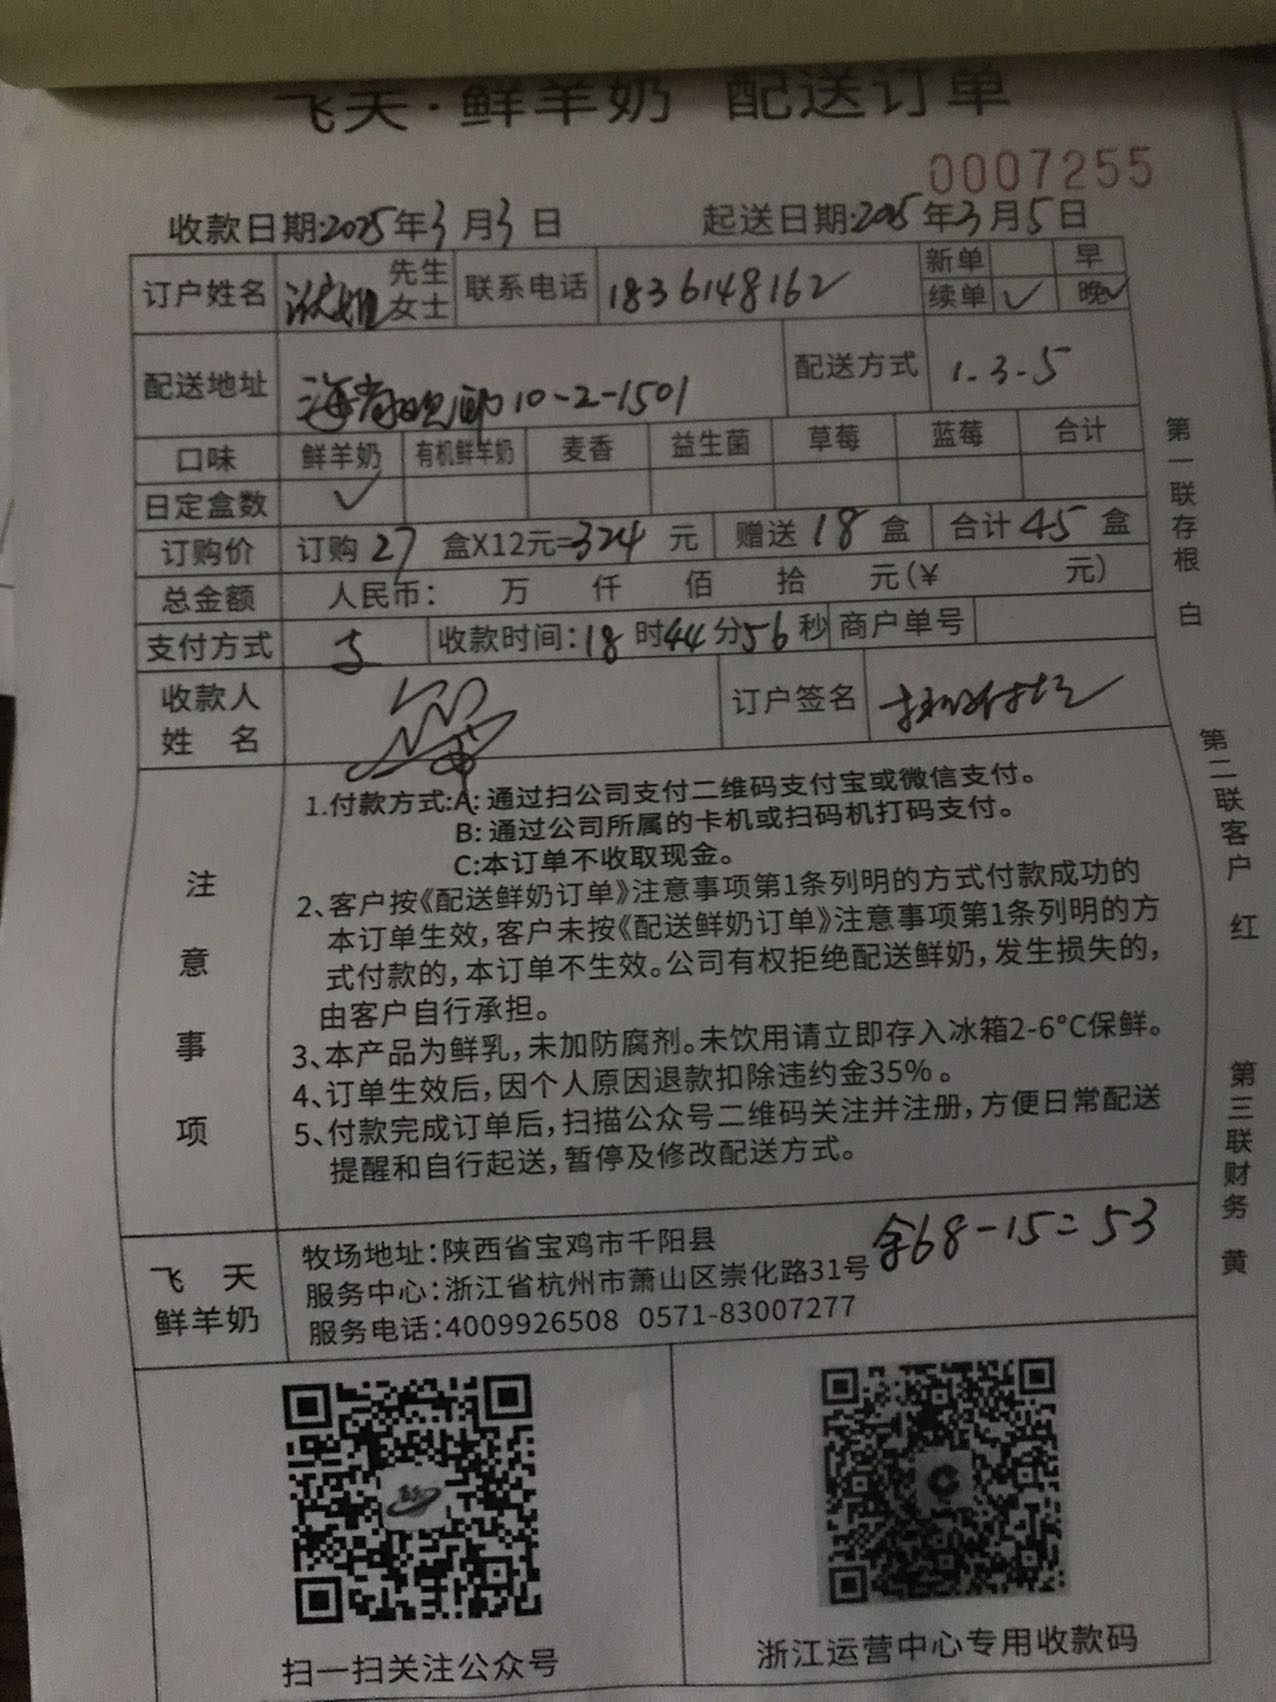 飞天·鲜羊奶 配送订单
0007255
收款日期:2025年3月3日 起送日期:2025年3月5日
订户姓名 先生 女士 联系电话 1836148162 新单 早
续单 ✓ 晚✓
配送地址 10-2-1501 配送方式 1.3.5
口味 鲜羊奶 有机鲜羊奶 麦香 益生菌 草莓 蓝莓 合计
日定盒数 ✓
订购价 订购27盒X12元=324元 赠送18盒 合计45盒
总金额 人民币: 万 仟 佰 拾 元(¥ 元)
支付方式 收款时间:18时44分56秒 商户单号
收款人
姓 名 订户签名
注意事项
1.付款方式:A:通过扫公司支付二维码支付宝或微信支付。
B:通过公司所属的卡机或扫码机打码支付。
C:本订单不收取现金。
2、客户按《配送鲜奶订单》注意事项第1条列明的方式付款成功的
本订单生效,客户未按《配送鲜奶订单》注意事项第1条列明的方
式付款的,本订单不生效。公司有权拒绝配送鲜奶,发生损失的,
由客户自行承担。
3、本产品为鲜乳,未加防腐剂。未饮用请立即存入冰箱2-6°C保鲜。
4、订单生效后,因个人原因退款扣除违约金35%。
5、付款完成订单后,扫描公众号二维码关注并注册,方便日常配送
提醒和自行起送,暂停及修改配送方式。
飞 天
鲜羊奶
牧场地址:陕西省宝鸡市千阳县
余68-15=53
服务中心:浙江省杭州市萧山区崇化路31号
服务电话:4009926508 0571-83007277
扫一扫关注公众号
浙江运营中心专用收款码
第一联存根 白
第二联客户 红
第三联财务 黄